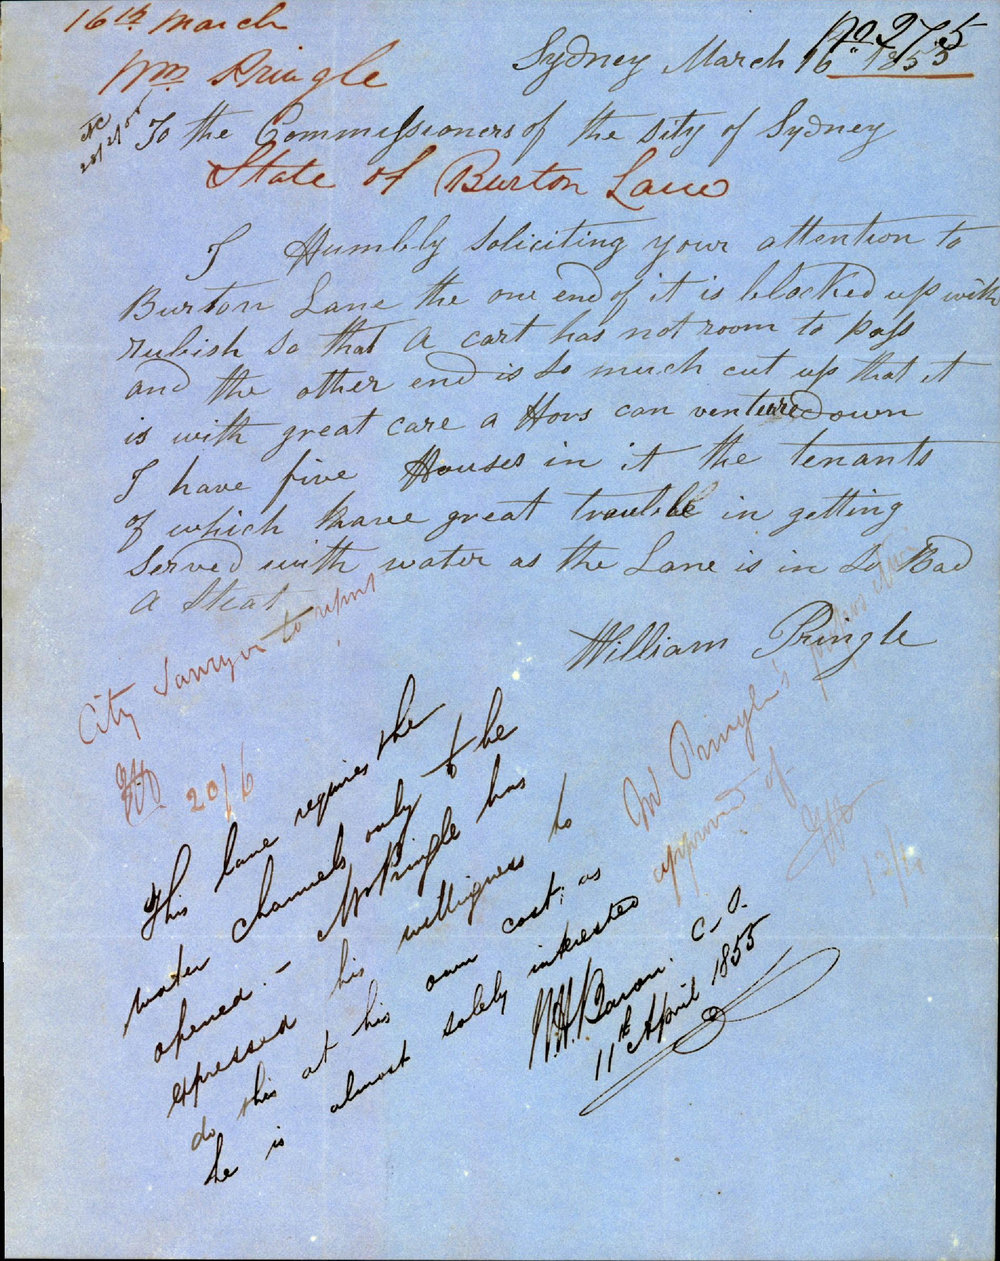 16th March
No 275
Wm Pringle
Sydney March 16 1855
To the Commissioners of the sity of Sydney
State of Burton Lane
I Humbly soliciting your attention to
Burton Lane the one end of it is blocked up with
rubish so that A cart has not room to pass
and the other end is so much cut up that it
is with great care a Hors can venture down
I have five Houses in it the tenants
of which have great trouble in getting
Served with water as the Lane is in so Bad
A Steat
William Pringle
City Surveyor to report
20/6
This lane requires the
water channels only to be
opened - Mr Pringle has
expressed his willigness to
do this at his own cost, as
he is almost solely interested
C.S.
11th April 1855
Mr Pringle's proposition
approved of